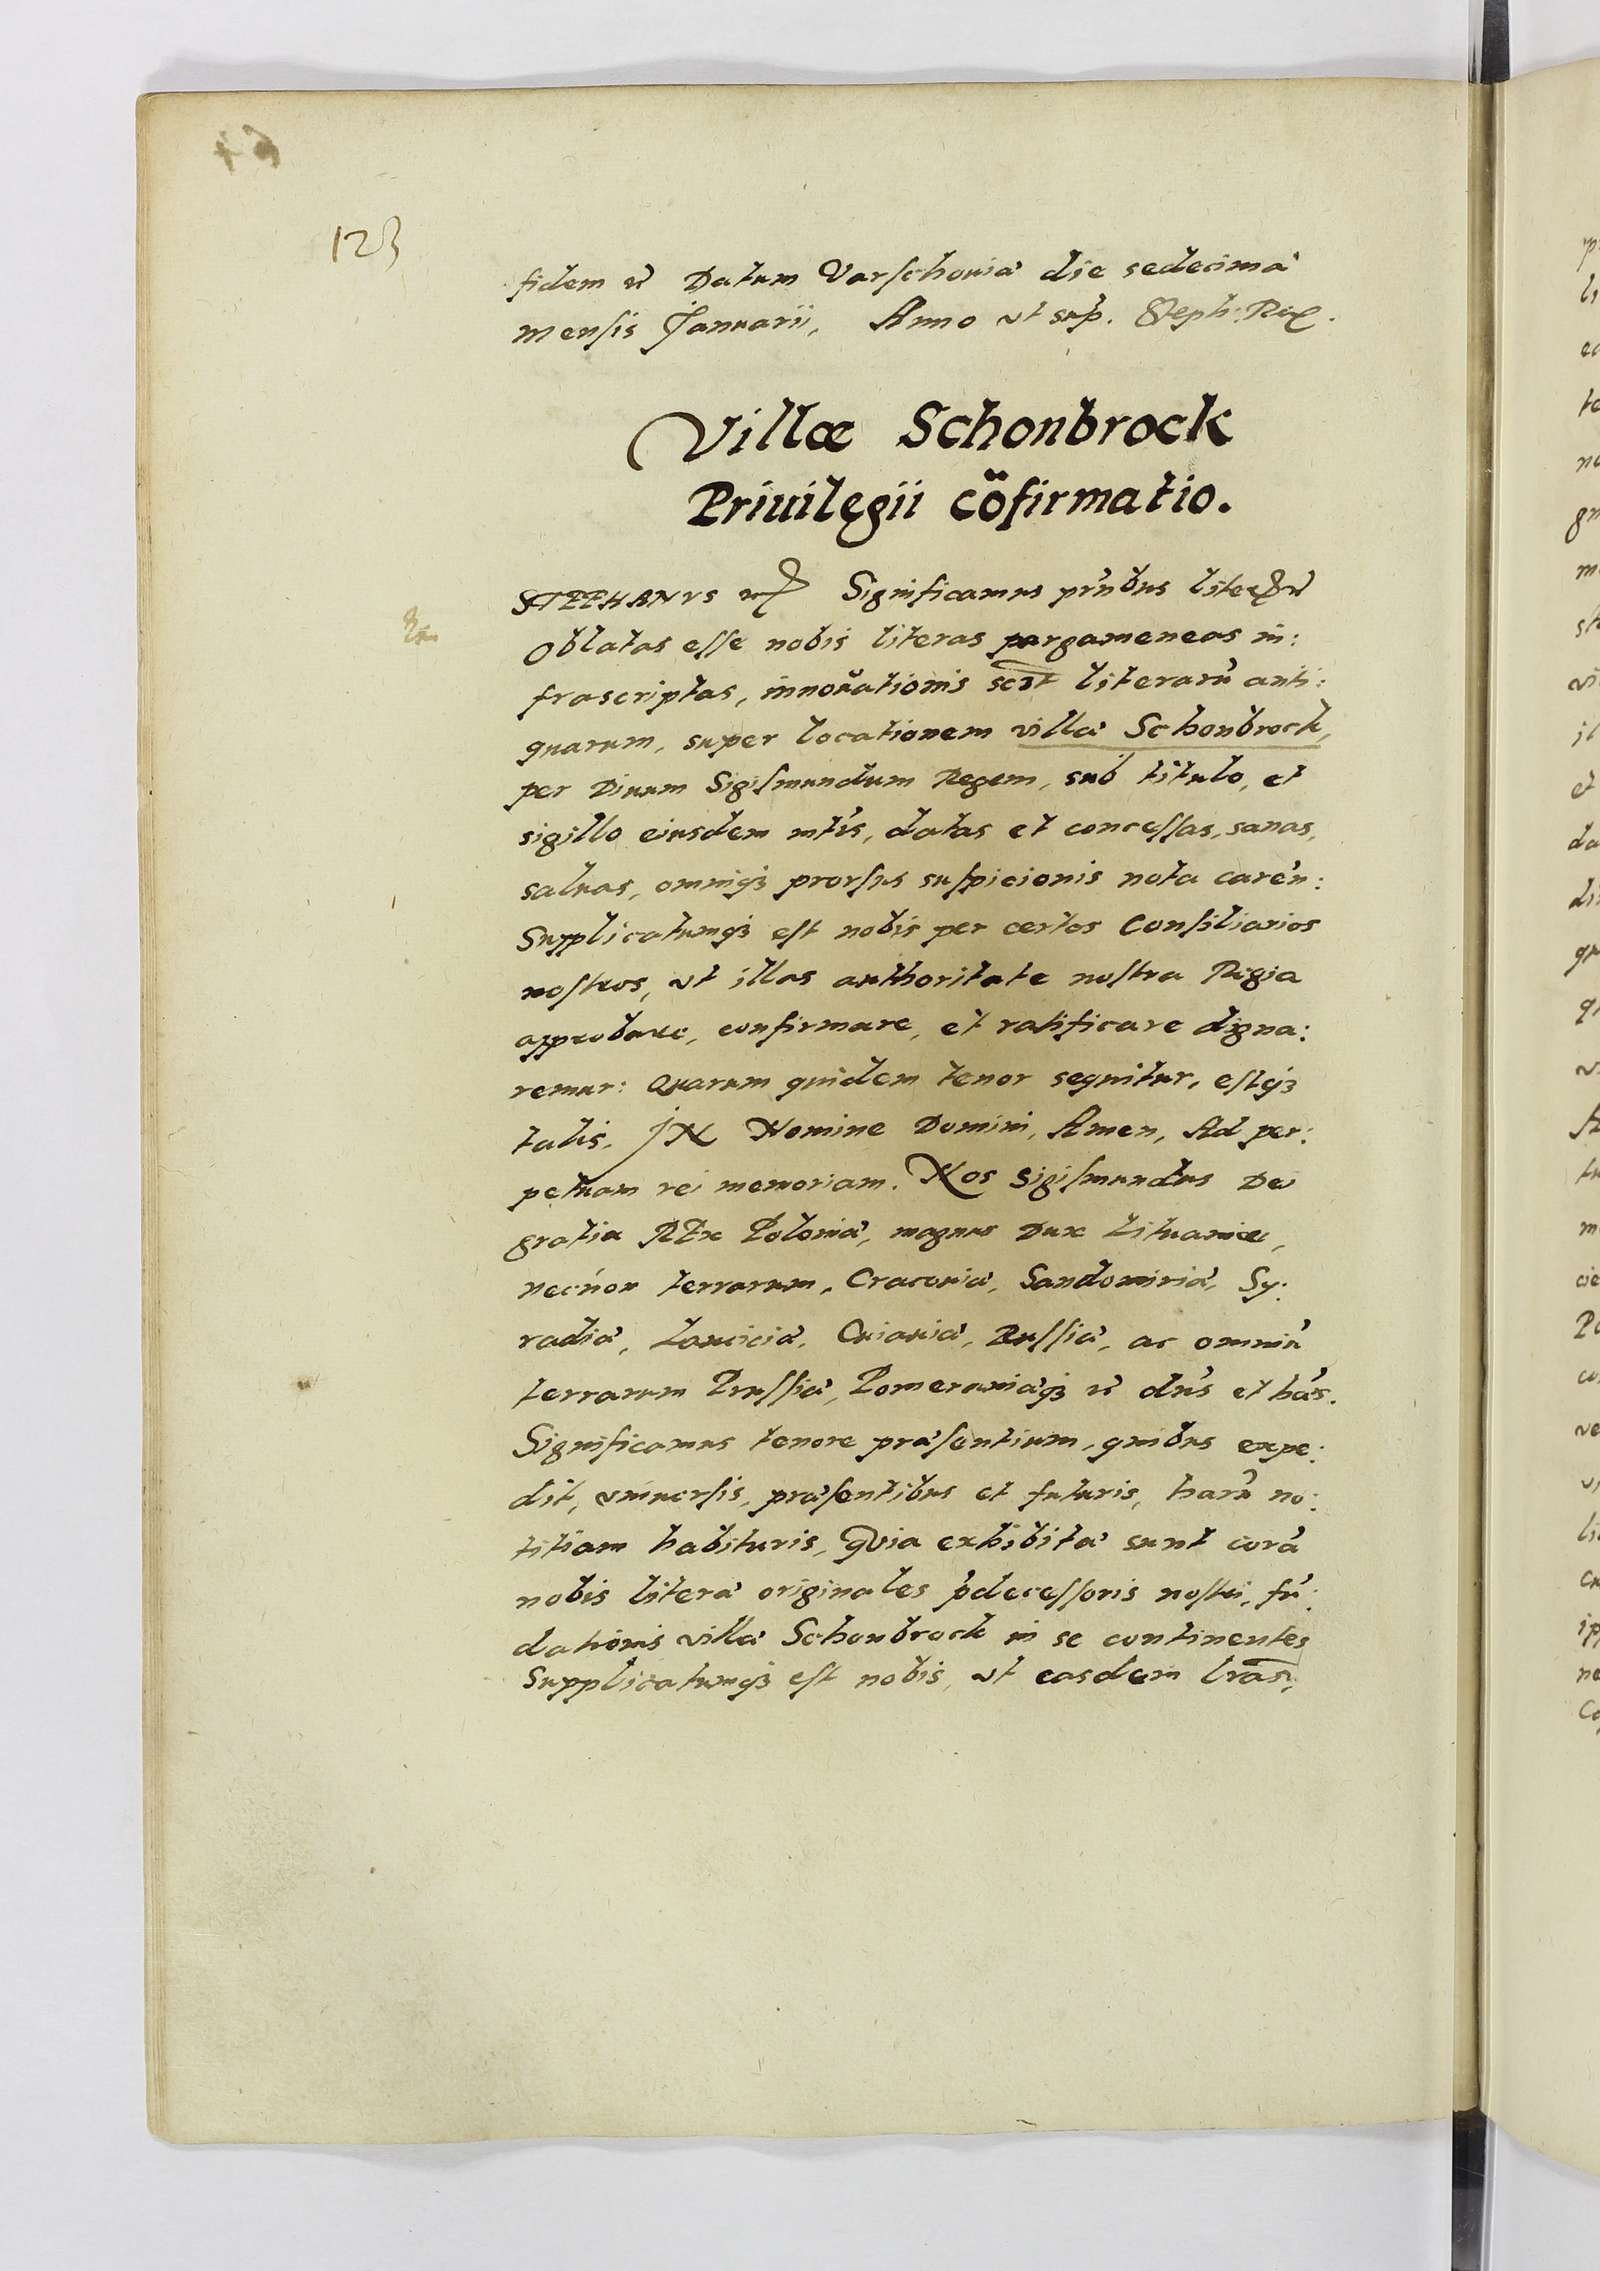 123
fidem &c Datum Varschouiæ die sedecima
mensis Januarii, Anno vt sup. Steph: Rex.
Villæ Schonbrock
Priuilegii cõfirmatio.
STEPHANVS &c Significamus pr̃ñbus
Oblatas esse nobis literas pargameneas in:
frascriptas, innouationis literarũ anti:
quarum, super locationem villæ Schonbrock,
per Diuum Sigismundum Regem, sub titulo, et
sigillo eiusdem mtis, datas et concessas, sanas,
saluas, omniq3 prorsus suspicionis nota careñ:
Supplicatumq3 est nobis per certos Consiliarios
nostros, vt illas authoritate nostra Regia
approbare, confirmare, et ratificare digna:
remur: Quarum quidem tenor sequitur, estq3
talis. JN Nomine Domini, Amen, Ad per:
petuam rei memoriam. Nos Sigismundus Dei
gratia REx Poloniæ, magnus Dux Lituaniæ,
necnon terrarum, Cracouiæ, Sandomiriæ, Sy:
radiæ, Lanciciæ, Cuiauiæ, Russiæ, ac omniũ
terrarum Prussiæ, Pomeraniæq3 &c dñs et hæs.
Significamus tenore præsentium, quibus expe:
dit, vniuersis, præsentibus et futuris, harũ no:
titiam habituris, Quia exhibitæ sunt corã
nobis literæ originales p̃decessoris nostri, fũ:
dationis villæ Schonbrock in se continentes
Supplicatumq3 est nobis, vt easdem lrãs,